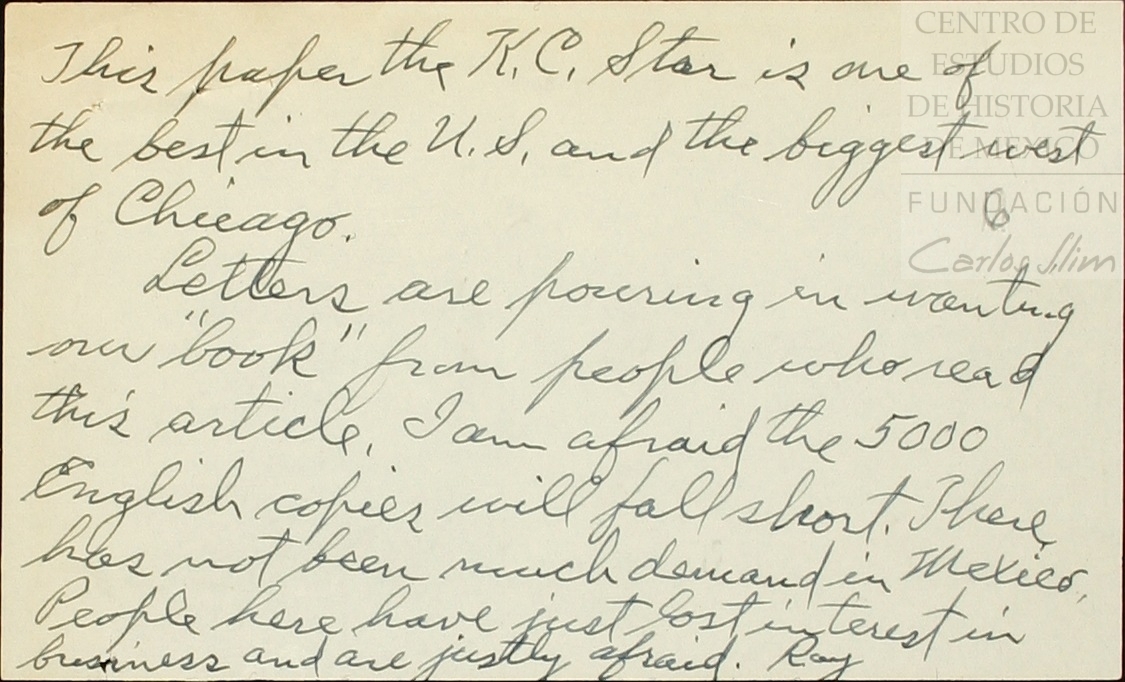 This paper the K.C. Star is one of
the best in the U.S. and the biggest west
of Chicago.
Letters are pouring in wanting
our "book" from people who read
this article. I am afraid the 5000
English copies will fall short. There
has not been much demand in Mexico.
People here have just lost interest in
business and are justly afraid. Ray
CENTRO DE
ESTUDIOS
DE HISTORIA
DE MEXICO
FUNDACIÓN
Carlos Slim